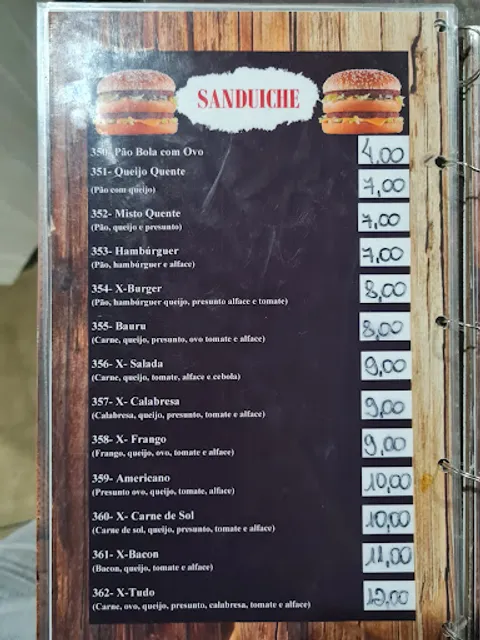 SANDUICHE
350- Pão Bola com Ovo 4,00
351- Queijo Quente 7,00
(Pão com queijo)
352- Misto Quente 7,00
(Pão, queijo e presunto)
353- Hambúrguer 7,00
(Pão, hambúrguer e alface)
354- X-Burger 8,00
(Pão, hambúrguer queijo, presunto alface e tomate)
355- Bauru 8,00
(Carne, queijo, presunto, ovo tomate e alface)
356- X- Salada 9,00
(Carne, queijo, tomate, alface e cebola)
357- X- Calabresa 9,00
(Calabresa, queijo, presunto, tomate e alface)
358- X- Frango 9,00
(Frango, queijo, ovo, tomate e alface)
359- Americano 10,00
(Presunto ovo, queijo, tomate, alface)
360- X- Carne de Sol 10,00
(Carne de sol, queijo, presunto, tomate e alface)
361- X-Bacon 11,00
(Bacon, queijo, tomate e alface)
362- X-Tudo 12,00
(Carne, ovo, queijo, presunto, calabresa, tomate e alface)